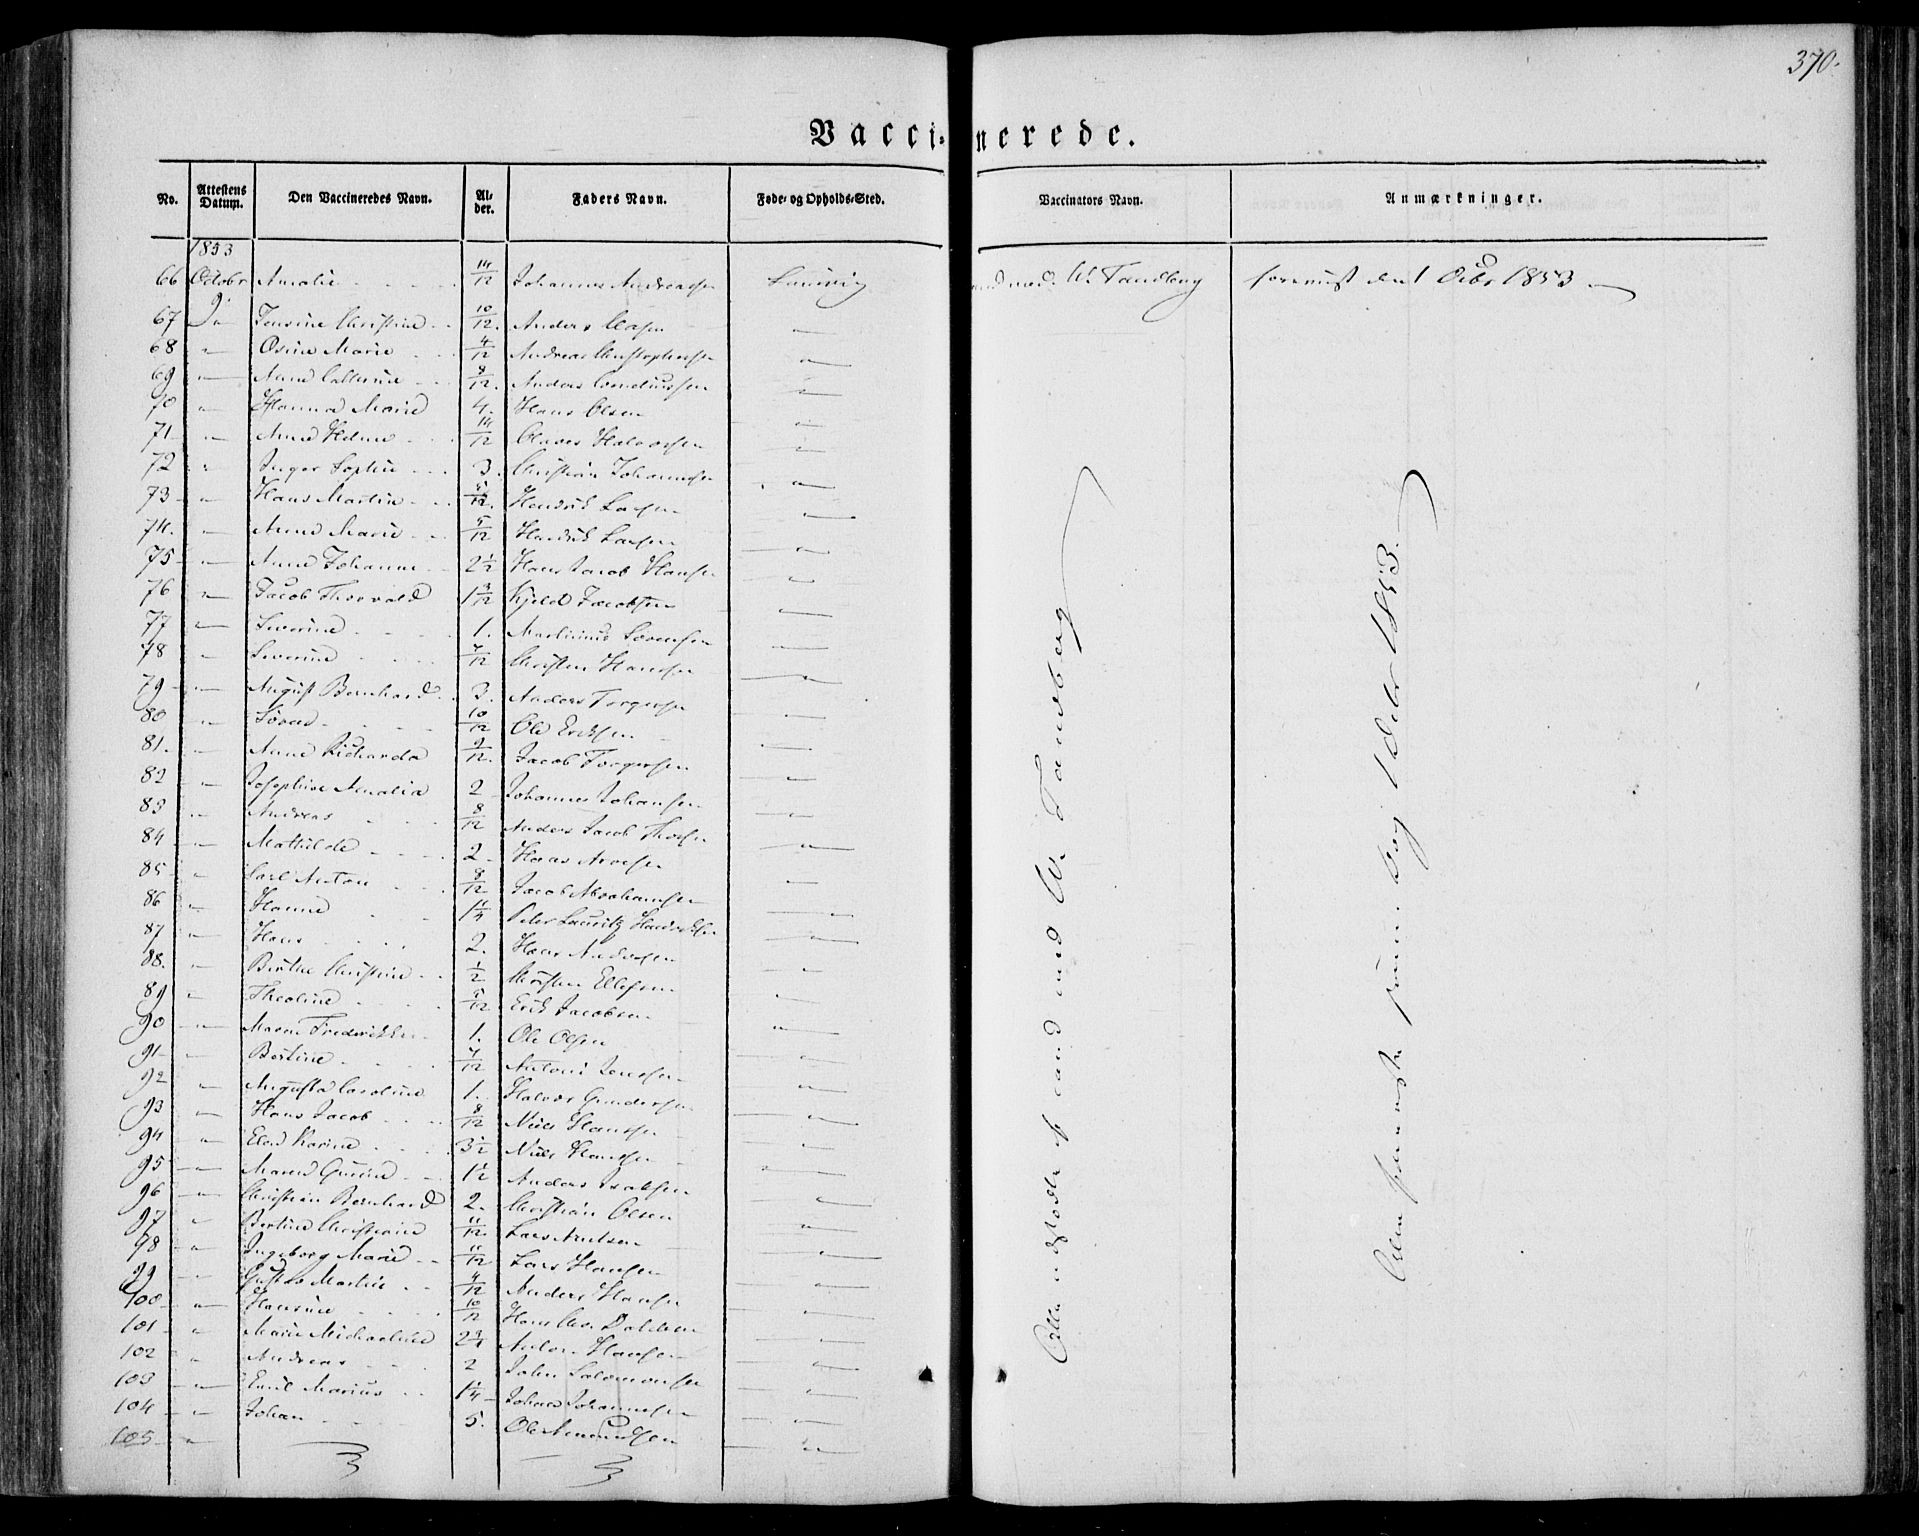 370.
Vaccinerede.
No. Attestens Datum. Den Vaccineredes Navn. Alder. Faders Navn. Føde- og Opholds-Sted. Vaccinators Navn. Anmærkninger.
1853
66 Octobr Amalie 14/12 Johannes Andreassen Laurvig cand med. W. Tandberg foreviist den 1 Octbr 1853
67 Jensine Christine 10/12 Anders
68 " Osine Marie 4/12 Andreas Christophersen "
69 " Anne Cathrine 8/12 Anders "
70 " Hanna Marie 4. Hans Olsen "
71 " Anne Helene 14/12 Olaves Halvorsen "
72 " Inger Sophie 3. Christian Johannesen "
73 " Hans Martin Hendrik Larsen "
74. " Anne Marie 5/12 Hendrik Larsen "
75 " Anne Johanne 2 1/2 Hans Jacob Hansen "
76 " Jacob Thorvald 1 3/12 Kjeld Jacobsen "
77 " Severine 1. Martinius Sørensen "
78 " Severine 7/12 Christen Hansen "
79 " August Bernhard 3. Anders Torgersen "
80 " Søren 10/12 Ole Eriksen "
81. " Anne Richarda 9/12 Jacob Torgersen "
82 " Josephine Amalia 2 Johannes Johansen "
83 " Andreas 8/12 Anders Jacob Thorsen "
84 " Mathilde 2. Hans Arvesen "
85 " Carl Anton 8/12 Jacob Abrahamsen "
86 " Hanne 1 1/4 Peter Lauritz Hendriksen "
87 " Hans 2. Hans Andersen "
88. " Berthe Christine 1/2 Christen Ellefsen "
89 " Theoline 5/12 Erik Jacobsen "
90 " Maren Frederikke 1. Ole Olsen "
91 " Bertine 7/12 Anton Jensen "
92 " Augusta Caroline 1. Halvor Gundersen "
93 " Hans Jacob 8/12 Niels Hansen "
94 " Elen Karine 3 1/2 Niels Hansen "
95 " Maren Gurine 1 1/2 Anders Isaksen "
96 " Christian Bernhard 2. Christian Olsen "
97 " Bertine Christiane 11/12 Lars "
98 " Ingeborg Marie 11/12 Lars Hansen "
99 " Gustav Martin 4/12 Anders Hansen "
100 " Hansine 10/12 Hans Chr. "
101 " Marie Michaeline 2 3/4 Anders Hansen "
102 " Andreas 2 John Salomonsen "
103 " Emil Marius 1 1/4 Johan Johannesen "
104 " Johan 5. Ole Amundsen "
105 " "
Alle udstedte af cand med W. Tandberg
Alle foreviste paa een Dag 1 Octbr 1853.